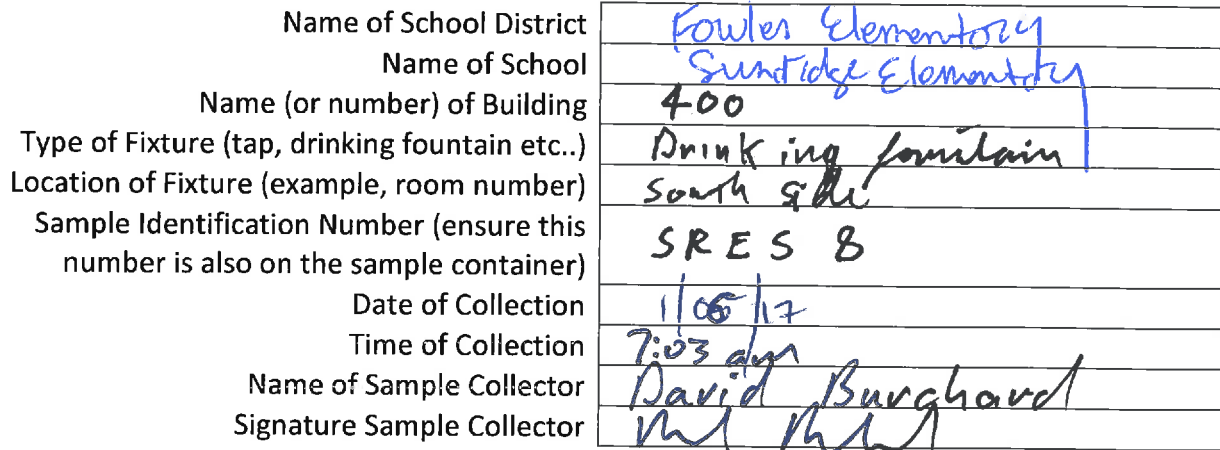 Name of School District Fowler Elementary
Name of School Sunridge Elementary
Name (or number) of Building 400
Type of Fixture (tap, drinking fountain etc..) Drinking fountain
Location of Fixture (example, room number) South side
Sample Identification Number (ensure this
number is also on the sample container) SRES 8
Date of Collection 1/06/17
Time of Collection 7:03 am
Name of Sample Collector David Burghard
Signature Sample Collector